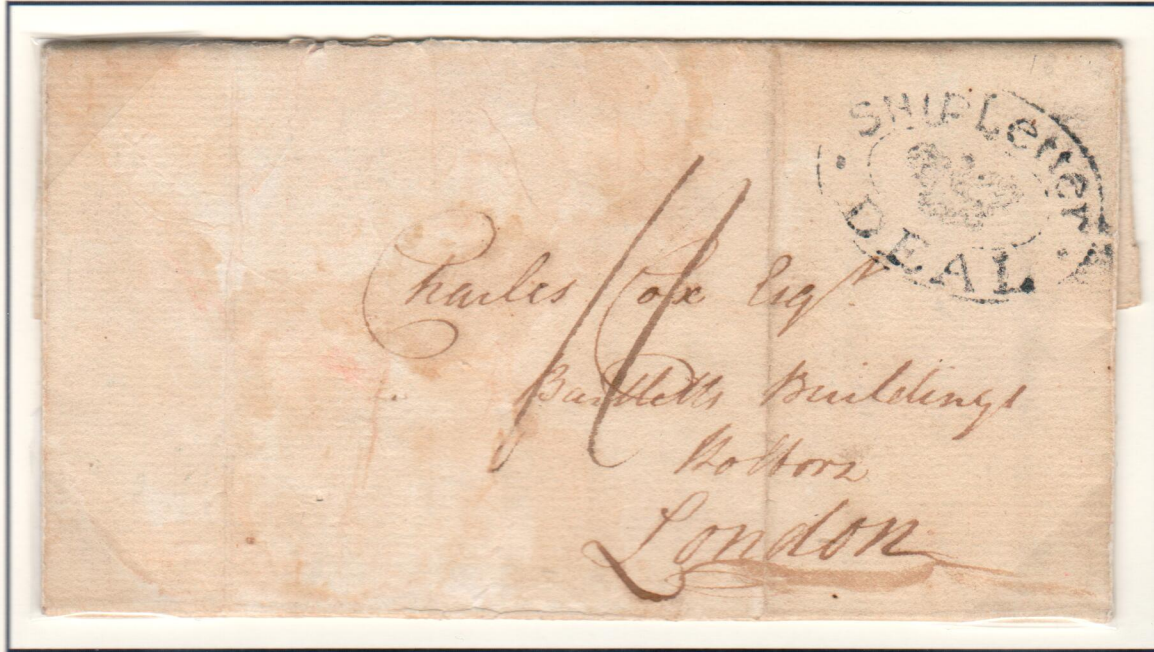 SHIP Letter
DEAL
11
Charles Cox Esqr.
Bartletts Buildings
Holborn
London